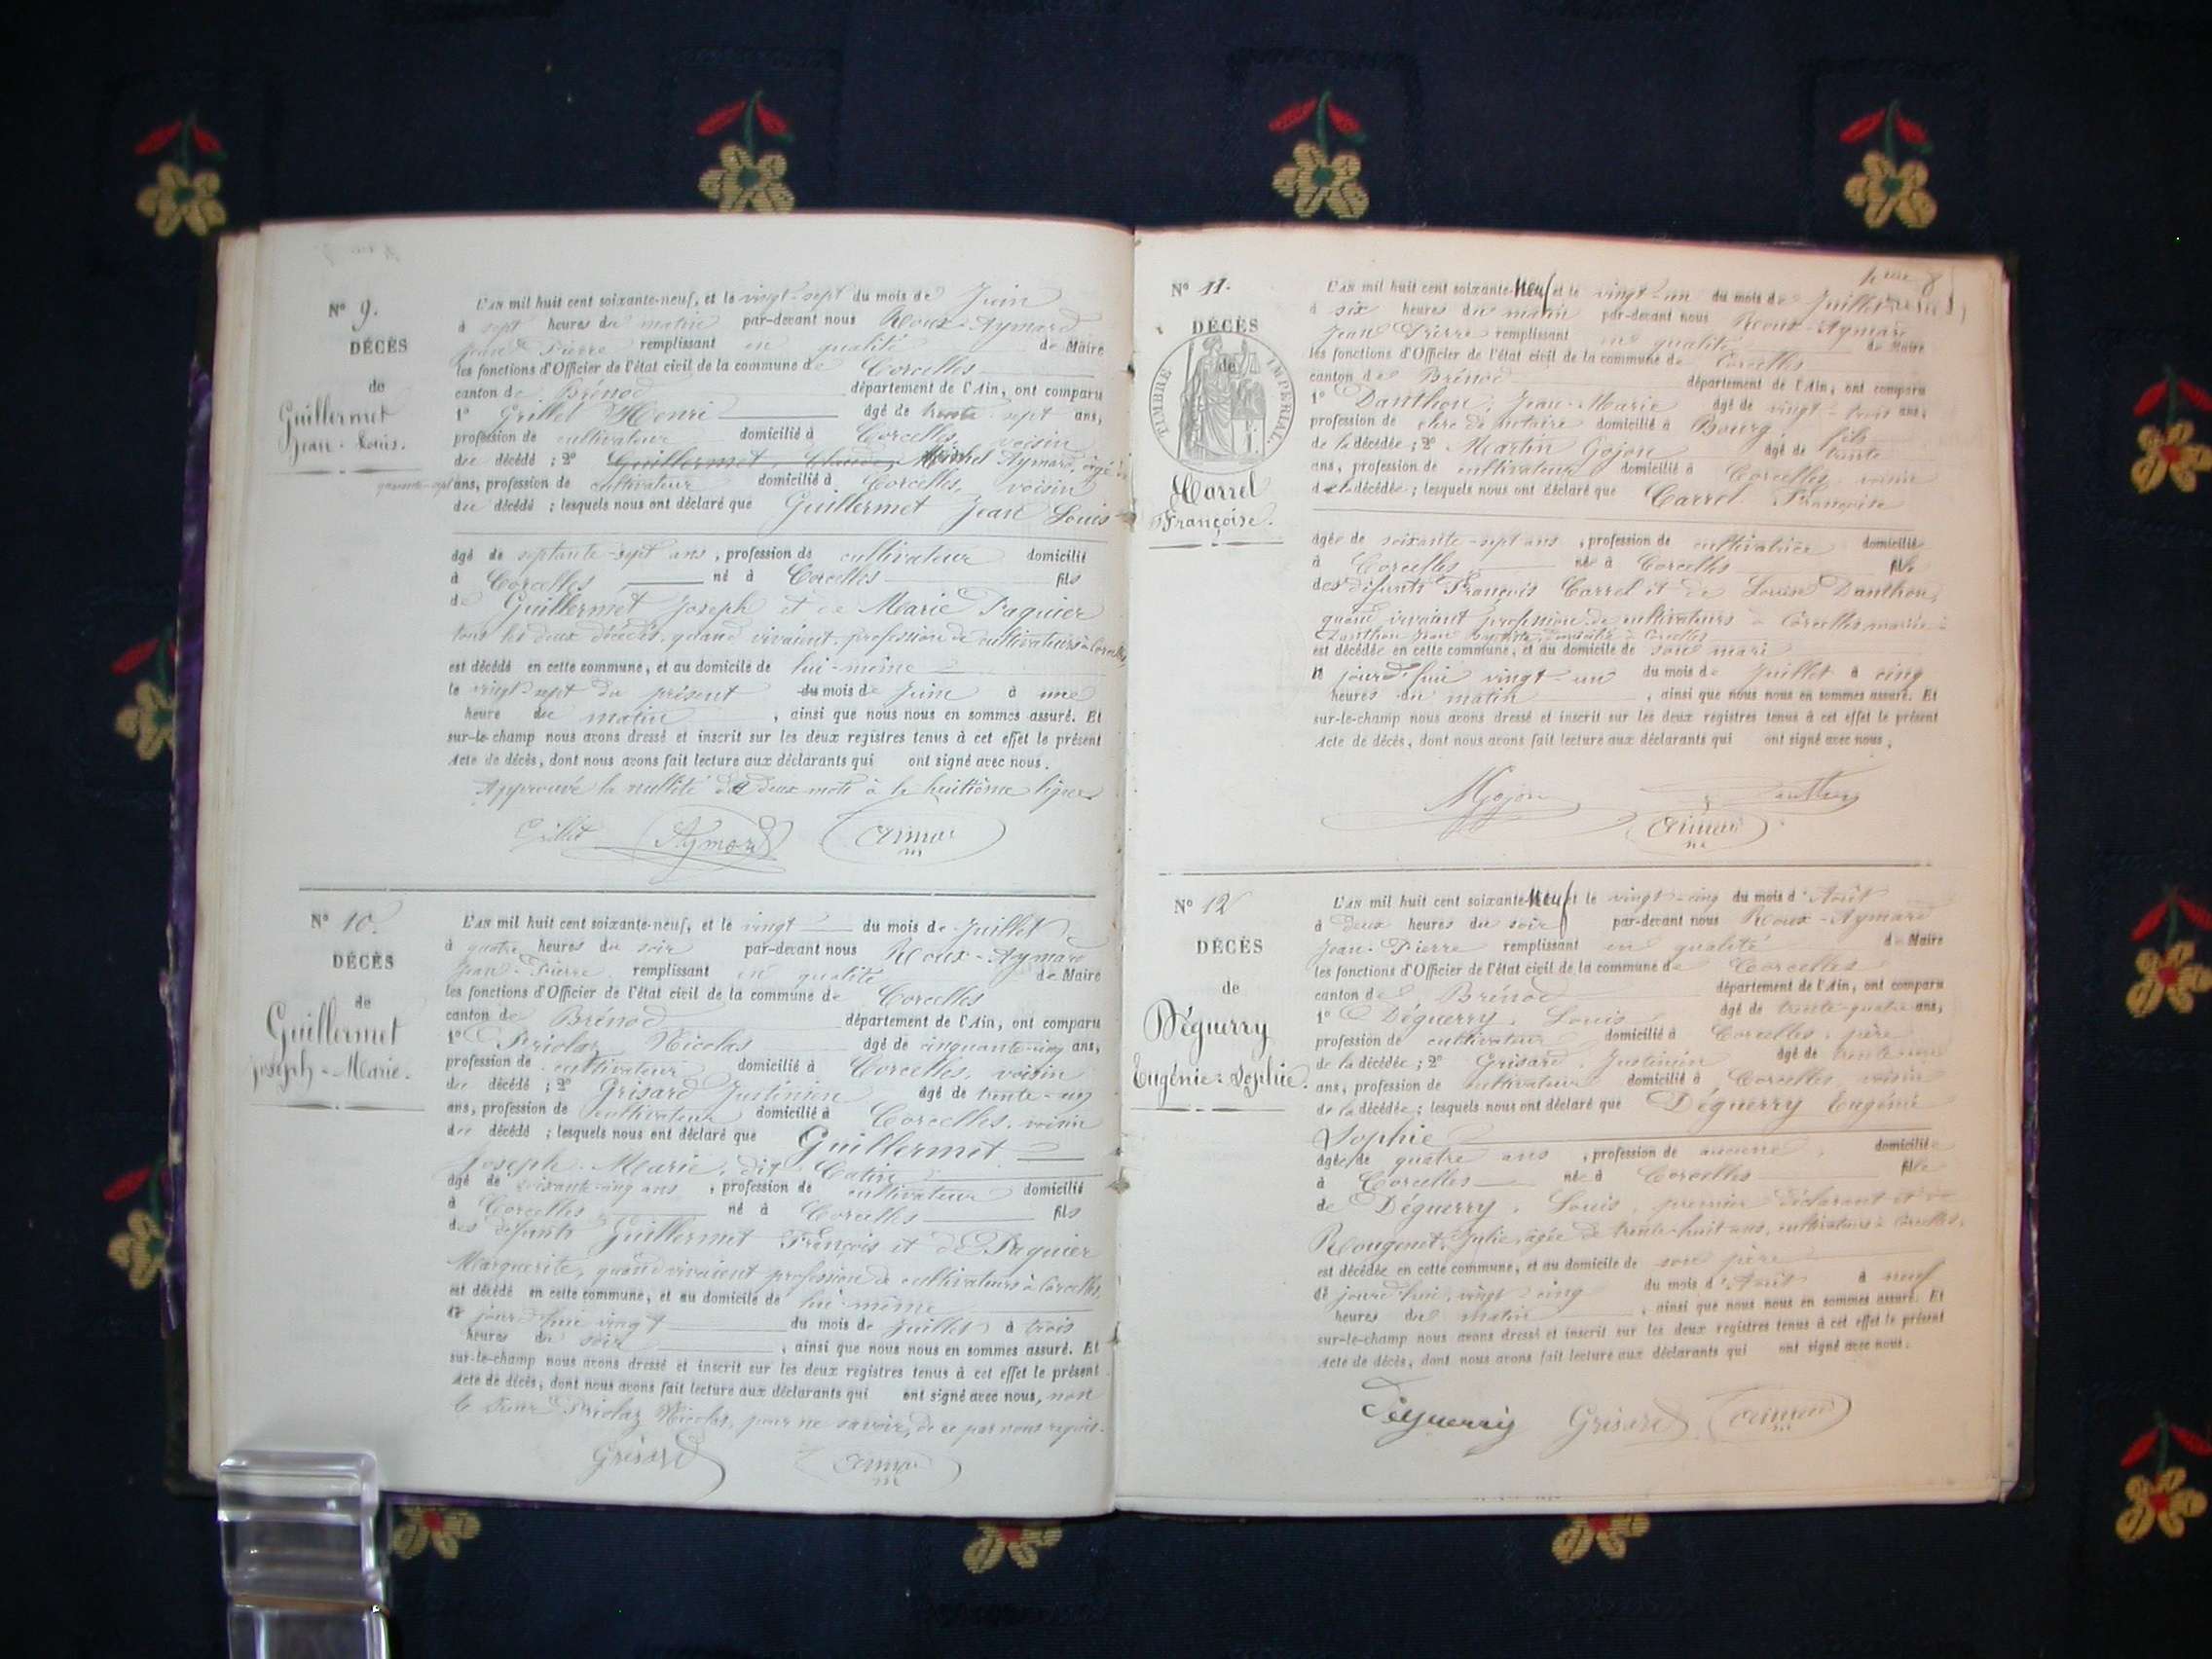 N° 9.
DÉCÈS
de
Guillermet
Jean-Louis.
L'AN mil huit cent soixante-neuf, et le vingt-sept du mois de Juin
à sept heures du matin par-devant nous Roux-Aymard
Jean Pierre remplissant en qualité de Maire
les fonctions d'Officier de l'état civil de la commune de Corcelles
canton de Brénod département de l'Ain, ont comparu
1° Grillet Henri âgé de trente-sept ans,
profession de cultivateur domicilié à Corcelles, voisin
du décédé ; 2° Guillermet, Claude, Michel Aymard, âgé de
quarante-sept ans, profession de cultivateur domicilié à Corcelles, voisin
du décédé ; lesquels nous ont déclaré que Guillermet Jean Louis
âgé de septante-sept ans, profession de cultivateur domicilié
à Corcelles, né à Corcelles fils
de Guillermet Joseph et de Marie Paquier
tous les deux décédés, quand vivaient, profession de cultivateurs à Corcelles,
est décédé en cette commune, et au domicile de lui-même
le vingt-sept du présent du mois de Juin à une
heure du matin, ainsi que nous nous en sommes assuré. Et
sur-le-champ nous avons dressé et inscrit sur les deux registres tenus à cet effet le présent
Acte de décès, dont nous avons fait lecture aux déclarants qui ont signé avec nous.
Approuvé la nullité de deux mots à la huitième ligne.
Grillet Aymard
N° 10.
DÉCÈS
de
Guillermet
Joseph-Marie.
L'AN mil huit cent soixante-neuf, et le vingt du mois de Juillet
à quatre heures du soir par-devant nous Roux-Aymard
Jean-Pierre remplissant en qualité de Maire
les fonctions d'Officier de l'état civil de la commune de Corcelles
canton de Brénod département de l'Ain, ont comparu
1° Nicolas âgé de cinquante-cinq ans,
profession de cultivateur domicilié à Corcelles, voisin
du décédé ; 2° Grisard Justinien âgé de trente-un
ans, profession de cultivateur domicilié à Corcelles, voisin
du décédé ; lesquels nous ont déclaré que Guillermet
Joseph-Marie, dit Catin
âgé de soixante-cinq ans, profession de cultivateur domicilié
à Corcelles né à Corcelles fils
des défunts Guillermet François et de Paquier
Marguerite, quand vivaient profession de cultivateurs à Corcelles,
est décédé en cette commune, et au domicile de lui-même
le jourd'hui vingt du mois de Juillet à trois
heures du soir, ainsi que nous nous en sommes assuré. Et
sur-le-champ nous avons dressé et inscrit sur les deux registres tenus à cet effet le présent
Acte de décès, dont nous avons fait lecture aux déclarants qui ont signé avec nous, non
le sieur Nicolas, pour ne savoir, de ce par nous requis.
Grisard
N° 11.
DÉCÈS
de
TIMBRE IMPÉRIAL
Carrel
Françoise.
L'AN mil huit cent soixante-neuf et le vingt-un du mois de Juillet
à six heures du matin par-devant nous Roux-Aymard
Jean Pierre remplissant en qualité de Maire
les fonctions d'Officier de l'état civil de la commune de Corcelles
canton de Brénod département de l'Ain, ont comparu
1° Danthon, Jean-Marie âgé de vingt-trois ans,
profession de clerc de notaire domicilié à Bourg, fils
de la décédée ; 2° Martin Gojon âgé de trente
ans, profession de cultivateur domicilié à Corcelles, voisin
de la décédée ; lesquels nous ont déclaré que Carrel Françoise
âgée de soixante-sept ans, profession de cultivatrice domiciliée
à Corcelles née à Corcelles fille
des défunts François Carrel et de Louise Danthon,
quand vivaient profession de cultivateurs à Corcelles, mariée à
Danthon Jean Baptiste, domicilié à Corcelles
est décédée en cette commune, et au domicile de son mari
le jourd'hui vingt-un du mois de Juillet à cinq
heures du matin, ainsi que nous nous en sommes assuré. Et
sur-le-champ nous avons dressé et inscrit sur les deux registres tenus à cet effet le présent
Acte de décès, dont nous avons fait lecture aux déclarants qui ont signé avec nous.
MGojon Danthon
N° 12
DÉCÈS
de
Déguerry
Eugénie-Sophie.
L'AN mil huit cent soixante-neuf et le vingt-cinq du mois d'Août
à deux heures du soir par-devant nous Roux-Aymard
Jean-Pierre remplissant en qualité de Maire
les fonctions d'Officier de l'état civil de la commune de Corcelles
canton de Brénod département de l'Ain, ont comparu
1° Déguerry, Louis âgé de trente-quatre ans,
profession de cultivateur domicilié à Corcelles, père
de la décédée ; 2° Grisard, Justinien âgé de trente-un
ans, profession de cultivateur domicilié à Corcelles, voisin
de la décédée ; lesquels nous ont déclaré que Déguerry Eugénie
Sophie
âgée de quatre ans, profession de aucune, domiciliée
à Corcelles née à Corcelles fille
de Déguerry, Louis, premier déclarant et de
Rougemet, Julie, âgée de trente-huit ans, cultivateurs à Corcelles,
est décédée en cette commune, et au domicile de son père
le jourd'hui, vingt-cinq du mois d'Août à neuf
heures du matin, ainsi que nous nous en sommes assuré. Et
sur-le-champ nous avons dressé et inscrit sur les deux registres tenus à cet effet le présent
Acte de décès, dont nous avons fait lecture aux déclarants qui ont signé avec nous.
Déguerry Grisard